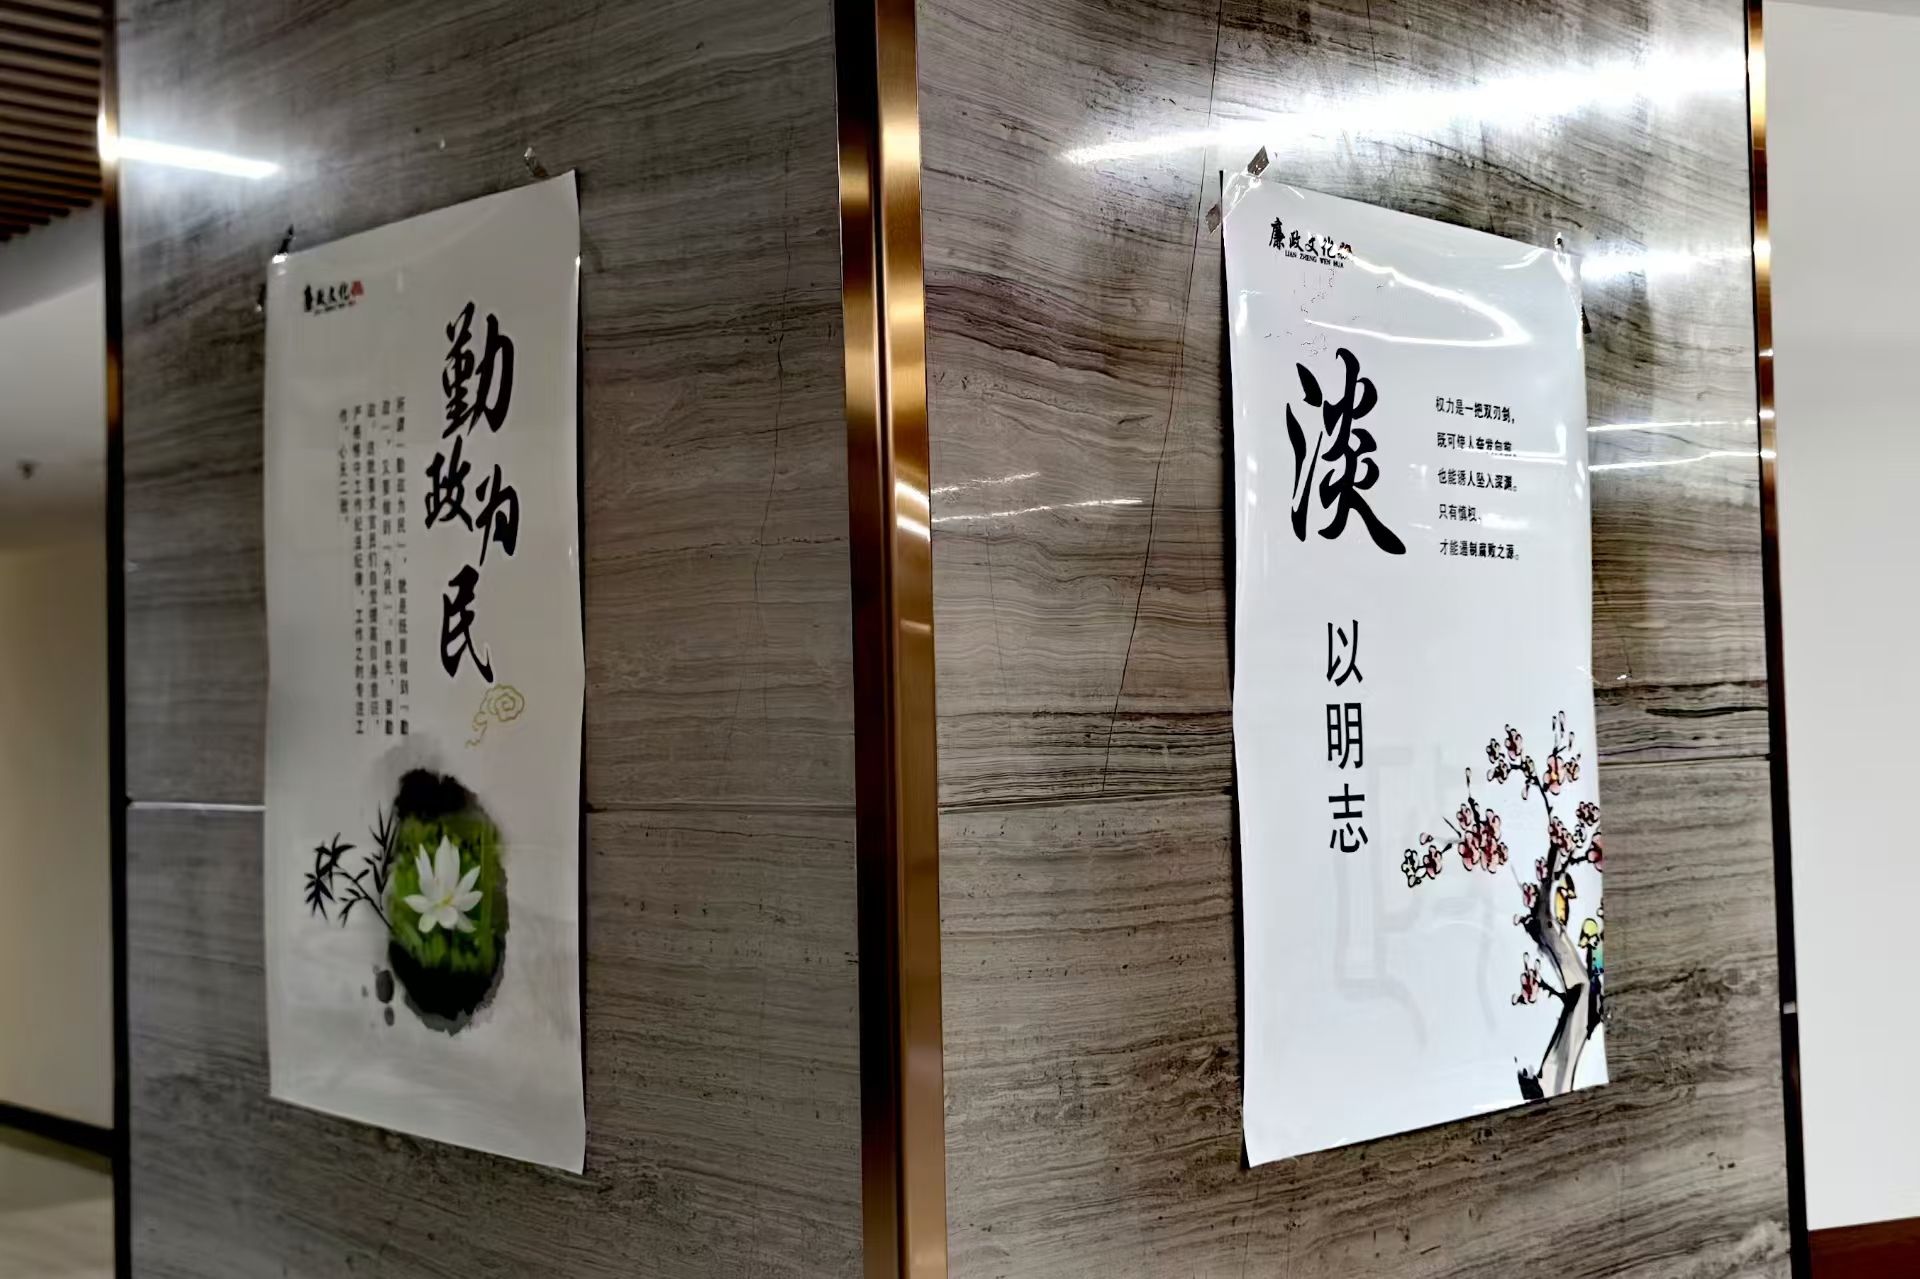 廉政文化
勤政为民
所谓“勤政为民”，就是既要做到“勤
政”，又要做到“为民”。首先，要勤
政。这就要求官员们自觉提高自身意识，
严格恪守工作纪法纪律，工作之时专注工
作，心无二致。
廉政文化
LIAN ZHENG WEN HUA
淡
以明志
权力是一把双刃剑，
既可使人奋发向前，
也能诱人坠入深渊。
只有慎权，
才能遏制腐败之源。